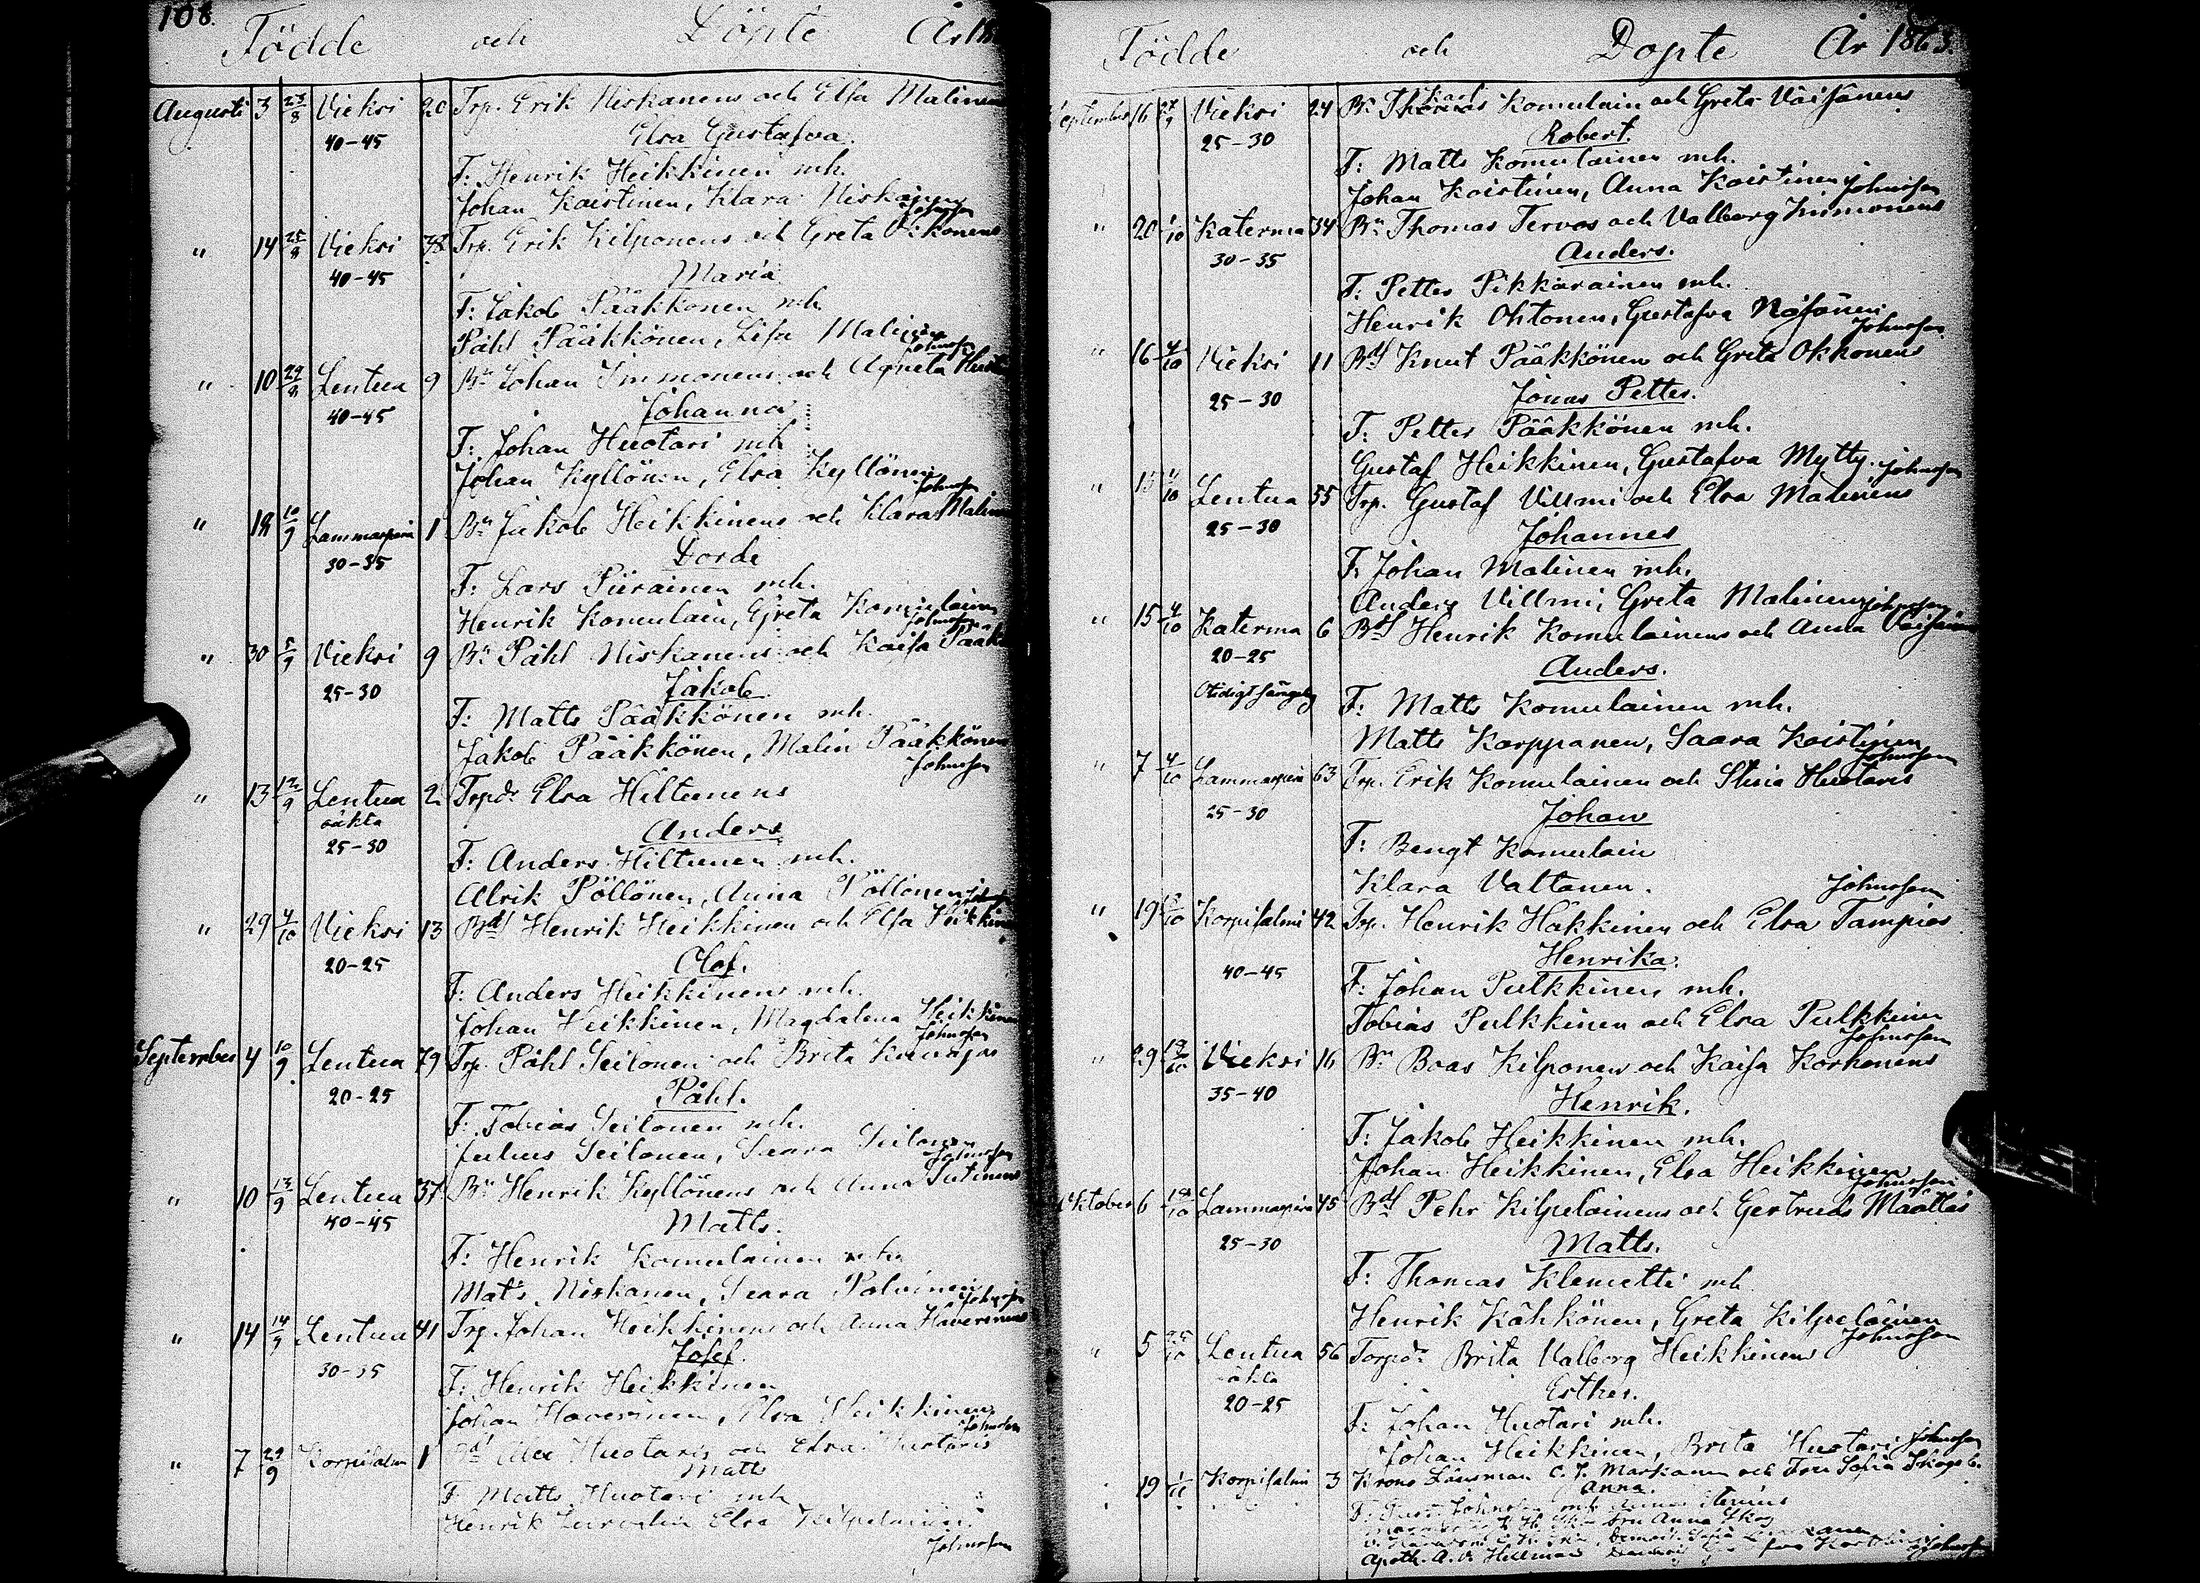 108.
Födde och Döpte År 18
Augusti 3 23/8 Vieksi 20 Trp. Erik Niskanens och Elsa Malinens
40-45 Elsa Gustafva.
F: Henrik Heikkinen mh.
Johan Koistinen, Klara Niskainen
Johnsson
" 14 25/8 Vieksi 38 Trp. Erik Kilponens och Greta Okkonens
40-45 Maria
F: Jakob Pääkkönen mh.
Påhl Pääkkönen, Lisa Malinen
Johnsson
" 10 29/8 Lentua 9 Bn Johan Immonens och Agneta
40-45 Johanna
F: Johan Huotari mh
Johan Kyllönen, Elsa Kyllönen
Johnsson
" 18 10/9 Lammasperä 1 Bn Jakob Heikkinens och Klara Malinen
30-35 Dorde
F: Lars Piirainen mh.
Henrik Komulain, Greta Komulainen
Johnsson
" 30 5/9 Vieksi 9 Bn Påhl Niskanens och Kaisa Pääkk
25-30 Jakob
F: Matts Pääkkönen mh.
Jakob Pääkkönen, Malin Pääkkönen
Johnsson
" 13 12/9 Lentua 2 Trpdr Elsa Hiltunens
oäkta Anders
25-30
F: Anders Hiltunen mh.
Alrik Pöllönen, Anna Pöllönen
Johnsson
" 29 4/10 Vieksi 13 Bds Henrik Heikkinen och Elsa Heikkinen
20-25 Olof.
F: Anders Heikkinens mh.
Johan Heikkinen, Magdalena Heikkinen
Johnsson
September 4 10/9 Lentua 79 Trp. Påhl Seilonen och Brita
20-25 Påhl.
F: Tobias Seilonen mh.
Julius Seilonen, Saara Seilonen
Johnsson
" 10 13/9 Lentua 37 Bn Henrik Kyllönens och Anna Sutinens
40-45 Matts.
F: Henrik Komulainen mh.
Mats Niskanen, Saara Polvinen
Johnsson
" 14 14/9 Lentua 41 Trp. Johan Heikkinens och Anna Haverinens
30-35 Josef.
F: Henrik Heikkinen
Johan Haverinen, Elsa Heikkinen
Johnsson
" 7 29/9 Korpisalmi 1 Huotaris och Elsa Huotaris
Matts
F: Matts Huotari mh
Henrik Elsa Kilpeläinen
Johnsson
Födde och Döpte År 1863.
September 16 27/9 Vieksi 24 Bn Thomas Komulain och Greta Väisänens
Karl
25-30 Robert.
F: Matts Komulainen mh.
Johan Koistinen, Anna Koistinen Johnsson
" 20 1/10 Katerma 34 Bn Thomas Tervos och Valborg Immonens
30-35 Anders.
F: Petter Pikkarainen mh.
Henrik Ohtonen, Gustafva Näisänen
Johnsson
" 16 4/10 Vieksi 11 Bds Knut Pääkkönen och Greta Okkonens
25-30 Jonas Petter.
F: Petter Pääkkönen mh.
Gustaf Heikkinen, Gustafva Mytty. Johnsson
" 15 4/10 Lentua 55 Trp. Gustaf Villmi och Elsa Malinens
25-30 Johannes
F: Johan Malinen mh.
Anders Villmi, Greta Malinen Johnsson
" 15 4/10 Katerma 6 Bds Henrik Komulainens och Anna Väisänen
20-25 Anders.
F: Matts Komulainen mh.
Matts Karppanen, Saara Koistinen
Johnsson
" 7 4/10 Lammasperä 63 Trp. Erik Komulainen och Stina Huotaris
25-30 Johan
F: Bengt Komulain
Klara Valtanen. Johnsson
" 19 /10 Korpisalmi 42 Trp. Henrik Hakkinen och Elsa Tampies
40-45 Henrika.
F: Johan Pulkkinen mh.
Tobias Pulkkinen och Elsa Pulkkinen
Johnsson
" 29 18/10 Vieksi 16 Bn Boas Kilponens och Kaisa Korhonens
35-40 Henrik.
F: Jakob Heikkinen mh.
Johan Heikkinen, Elsa Heikkinen
Johnsson
Oktober 6 18/10 Lammasperä 45 Bds Pehr Kilpeläinens och Gertruds Määttäs
25-30 Matts.
F: Thomas Klemetti mh
Henrik Kähkönen, Greta Kilpeläinen
Johnsson
" 5 25/10 Lentua 56 Torpdr Brita Valborg Heikkinens
oäkta Esther.
20-25
F: Johan Huotari mh.
Johan Heikkinen, Brita Huotari Johnsson
19 1/11 Korpisalmi 3 Krono Länsman C. J. Markanen och Fru Sofia
Anna.
F: Johnsson mh Anna
Fru Anna
Apoth. A. V. Hellman Johnsson